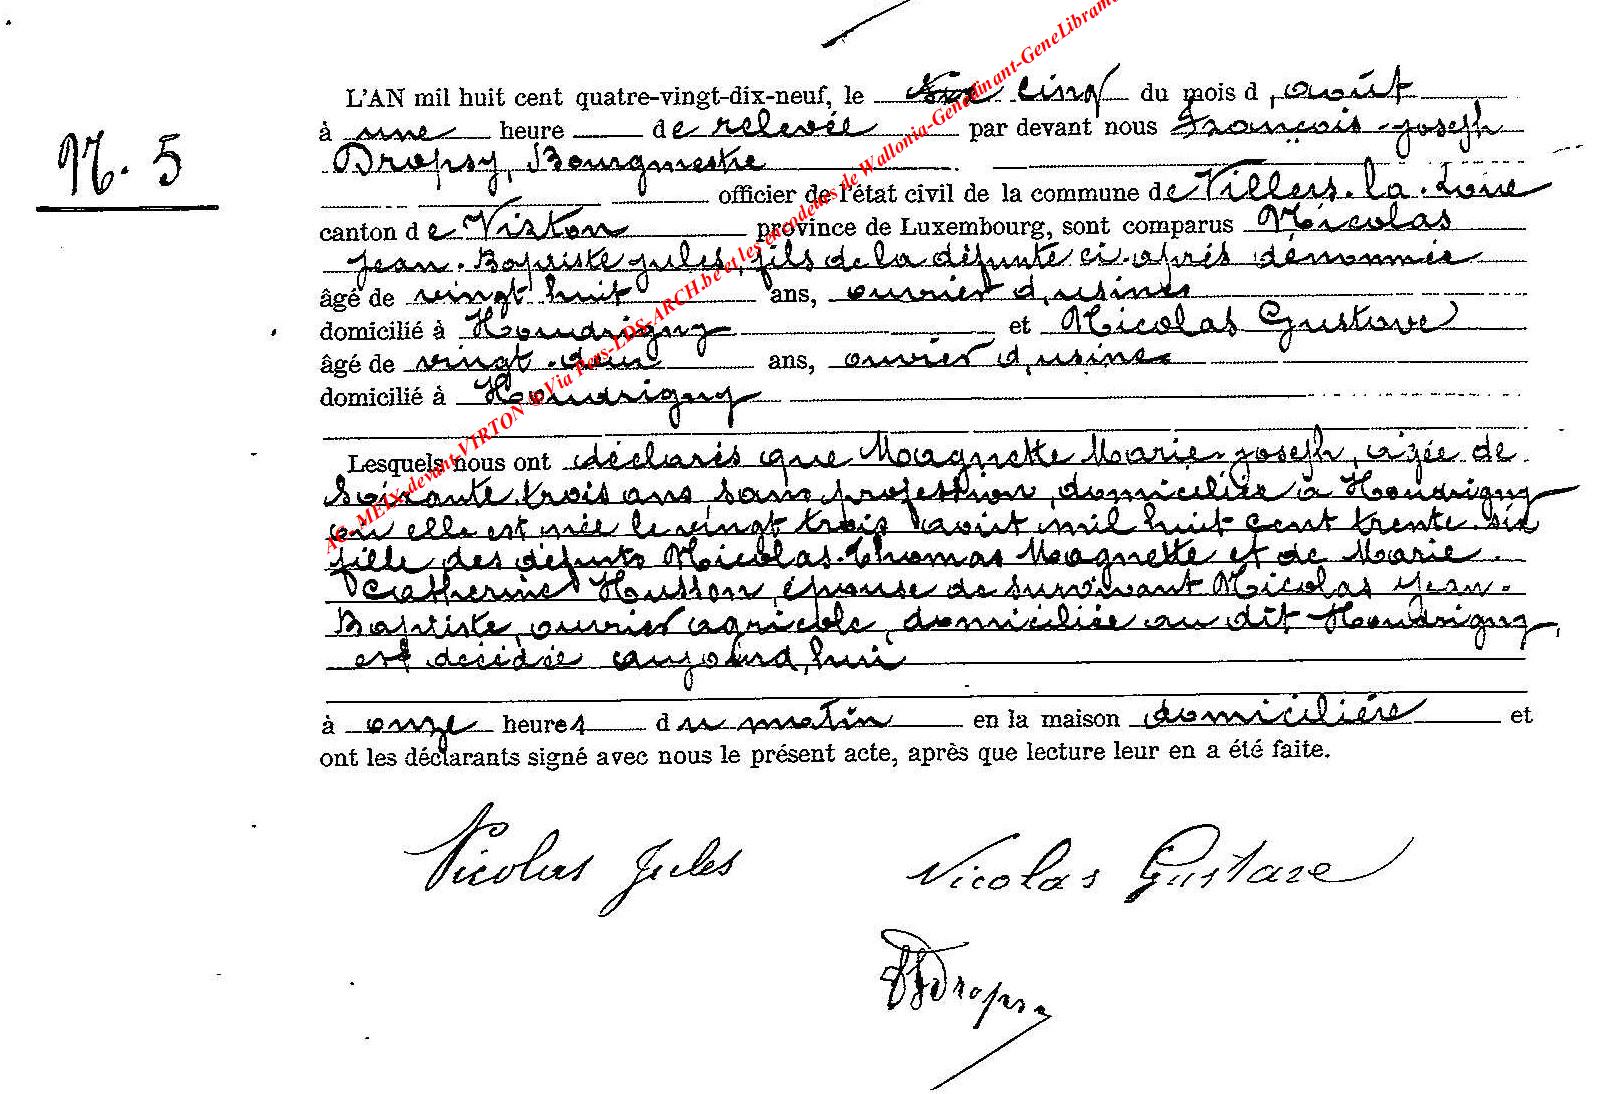 L'AN mil huit cent quatre-vingt-dix-neuf, le six cinq du mois d'août
N. 5
à une heure de relevée par devant nous François-joseph
Dropsy, Bourgmestre
officier de l'état civil de la commune de Villers-la-Loue
canton de Virton province de Luxembourg, sont comparus Nicolas
Jean-Baptiste jules, fils de la défunte ci-après dénommée
âgé de vingt huit ans, ouvrier d'usines
domicilié à Houdrigny et Nicolas Gustave
âgé de vingt-deux ans, ouvrier d'usines
domicilié à Houdrigny
Lesquels nous ont déclarés que Magnette Marie-joseph, agée de
Soixante-trois ans, sans profession, domiciliée à Houdrigny
ou elle est née le vingt trois août mil huit cent trente-six
fille des défunts Nicolas-Thomas Magnette et de Marie
Catherine Husson, épouse de survivant Nicolas jean-
Baptiste, ouvrier agricole, domiciliée au dit Houdrigny,
est décédée aujourd'hui
à onze heures du matin en la maison domiciliére et
ont les déclarants signé avec nous le présent acte, après que lecture leur en a été faite.
Nicolas Jules Nicolas Gustave
FJDropsy
AC- MEIX-devant-VIRTON © Via Pers-LDS-ARCH.be et les encodeurs de Wallonia-Genedinant-GeneLibramo